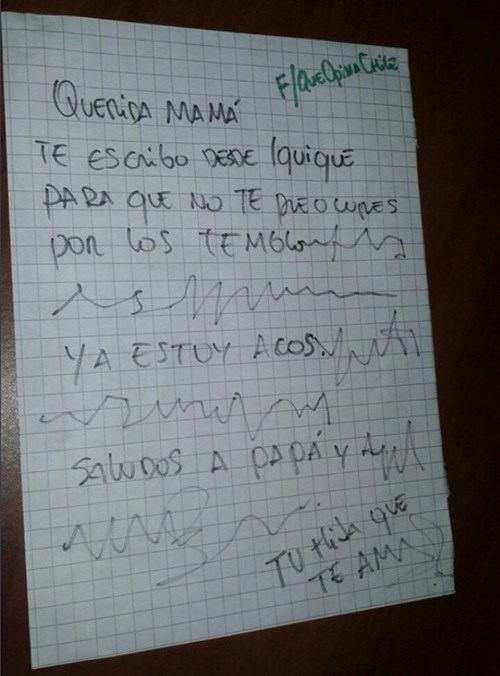 F/QueOpinaChile
QUERIDA MAMÁ
TE escribo DESDE Iquique
PARA QUE NO TE PREOCUPES
POR LOS TEMBLO
YA ESTOY ACOS
SALUDOS A PAPÁ Y A
TU HIJA QUE
TE AMA